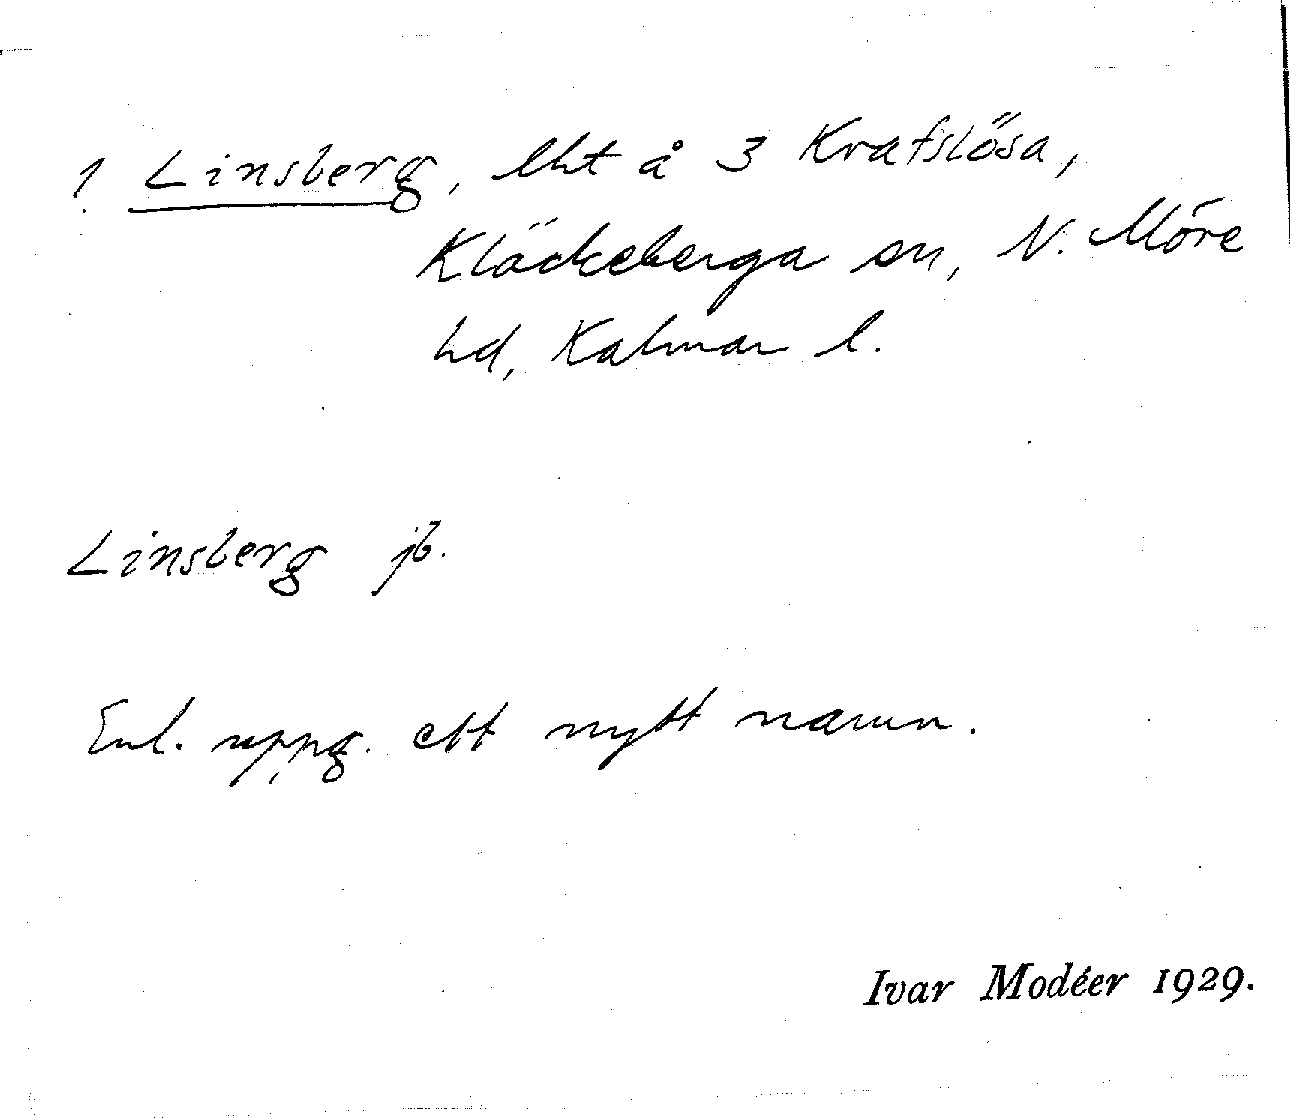 ! Linsberg, lht å 3 Krafslösa,
Kläckeberga sn, N. Möre
hd, Kalmar l.
Linsberg jb.
Enl. uppg. ett nytt namn.
Ivar Modéer 1929.